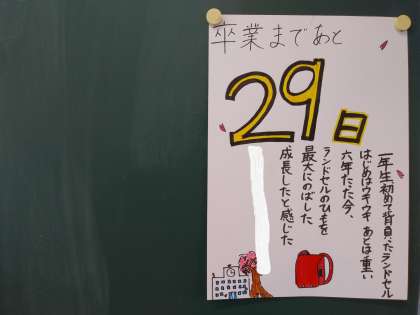 卒業まであと
29日
一年生初めて背負ったランドセル
はじめはウキウキ あとは重い
六年たった今、
ランドセルのひもを
最大にのばした
成長したと感じた